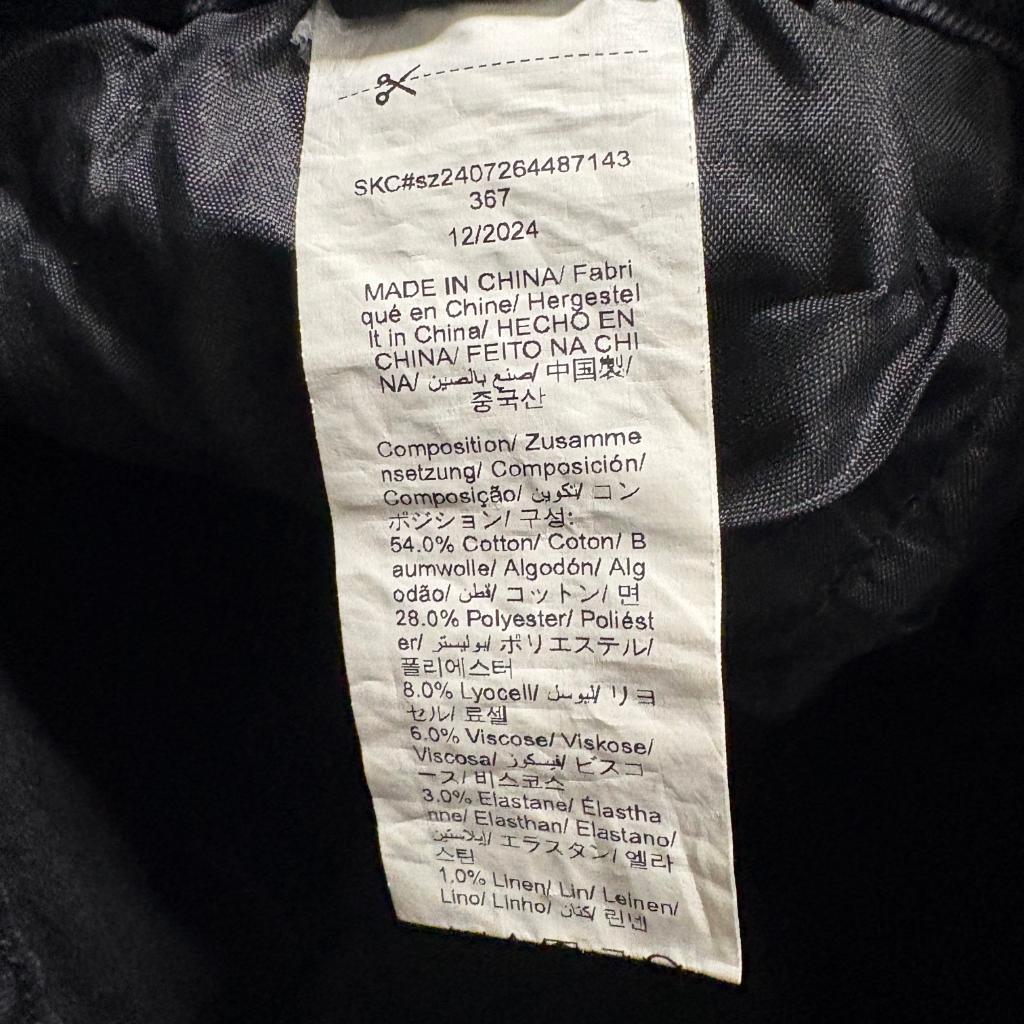 SKC#sz2407264487143
367
12/2024
MADE IN CHINA/ Fabri
qué en Chine/ Hergestel
lt in China/ HECHO EN
CHINA/ FEITO NA CHI
NA/ صنع بالصين/ 中国製/
중국산
Composition/ Zusamme
nsetzung/ Composición/
Composição/ تكوين/ コン
ポジション/ 구성:
54.0% Cotton/ Coton/ B
aumwolle/ Algodón/ Alg
odão/ قطن/ コットン/ 면
28.0% Polyester/ Poliést
er/ بوليستر/ ポリエステル/
폴리에스터
8.0% Lyocell/ ليوسل/ リヨ
セル/ 료셀
6.0% Viscose/ Viskose/
Viscosa/ فيسكوز/ ビスコ
ース/ 비스코스
3.0% Elastane/ Élastha
nne/ Elasthan/ Elastano/
إيلاستين/ エラスタン/ 엘라
스틴
1.0% Linen/ Lin/ Leinen/
Lino/ Linho/ كتان/ 린넨